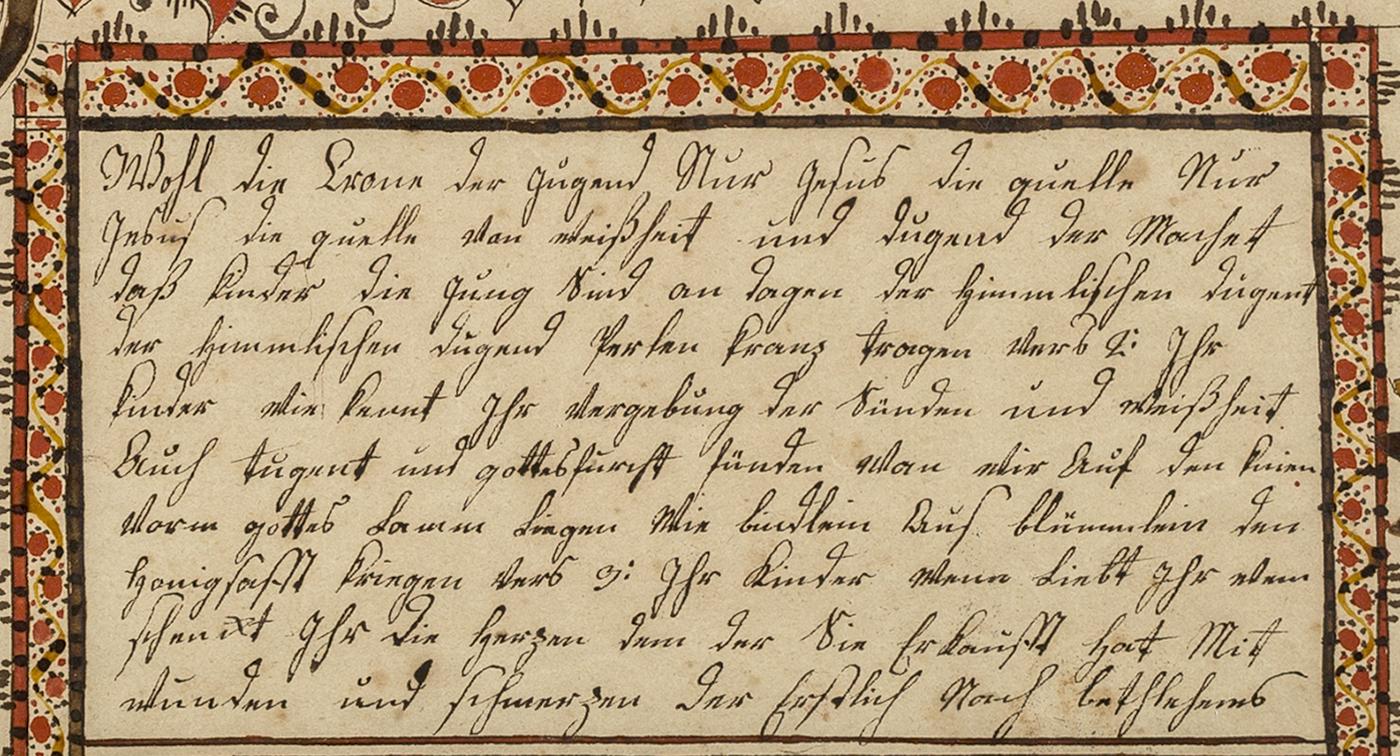 Wohl die Crone der Jugend Nur Jesus die quelle Nur
Jesus die quelle von weißheit und dugend der Machet
daß kinder die Jung Sind an dagen der Himmlischen dugent
der himmlischen dugend Perlen kranz tragen vers 2: Ihr
kinder wie kennt Ihr vergebung der Sünden und weißheit
Auch tugent und gottesfurcht fünden wan wir Auf den knien
vorm gottes Lamm Liegen Wie bindlein Aus blümmlein den
Honigsafft kriegen vers 3: Ihr Kinder wenn Liebt Ihr wem
schenckt Ihr die Herzen dem der Sie Erkaufft hat Mit
wunden und schmerzen der Erstlich Nach bethlehems